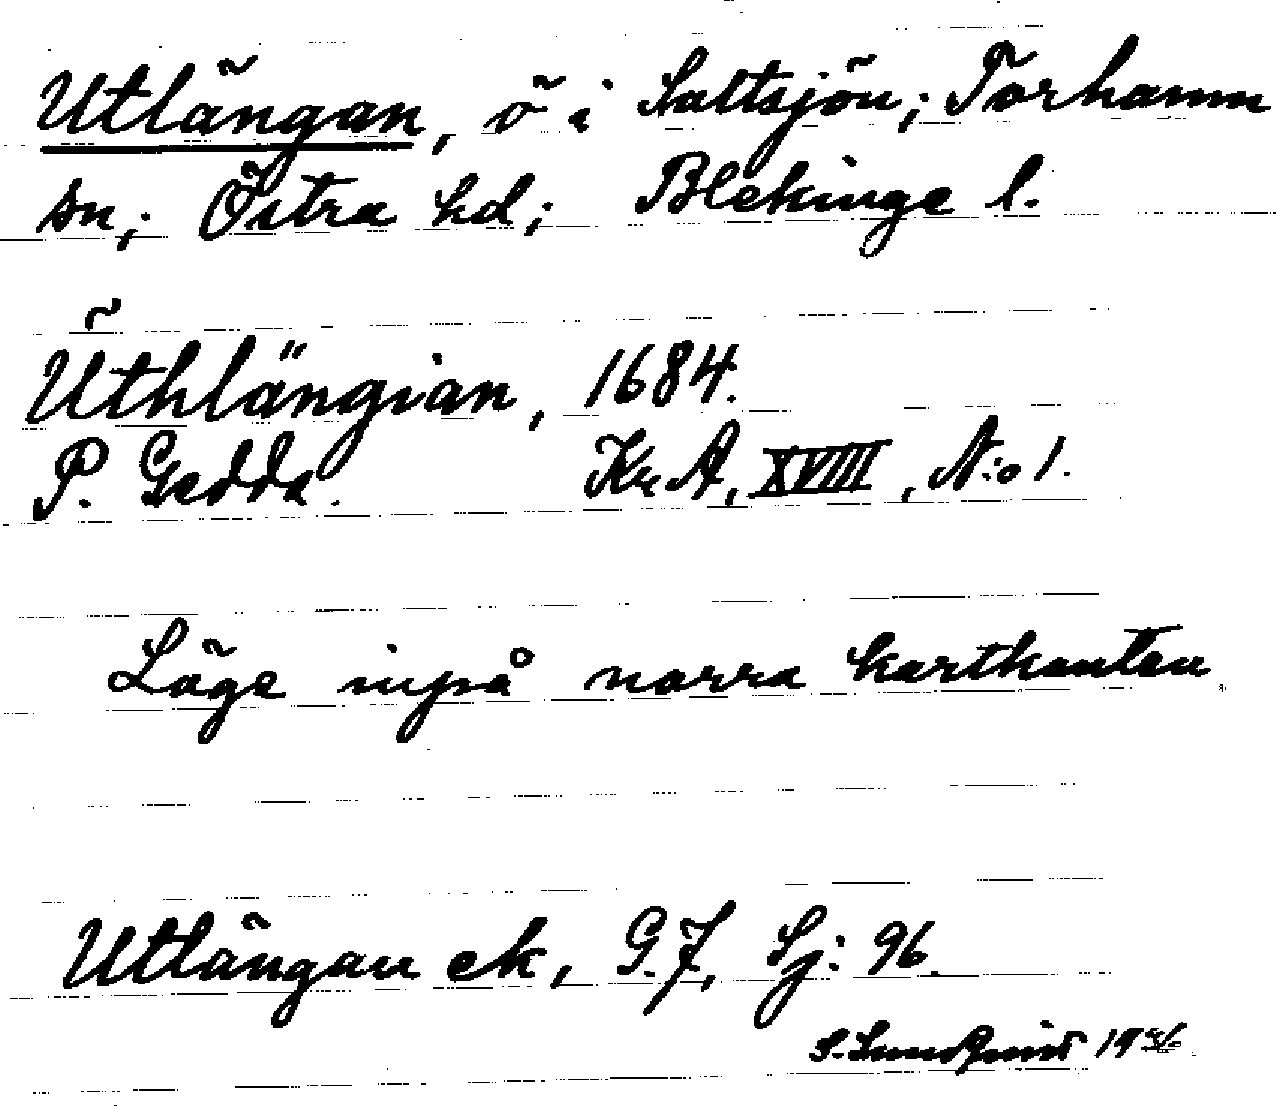 Utlängan, ö i Saltsjön; Torhamn
sn; Östra hd; Blekinge l.
Ũthlängian, 1684.
P. Gedda. KrA, XVIII, N:o 1.
Läge inpå norra kartkanten
Utlängan ek, G.F, Sj: 96.
S. Lundqvist 19